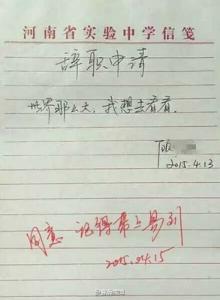 河南省实验中学信笺
辞职申请
世界那么大，我想去看看。
顾
2015.4.13
同意 记得带上易利
2015.04.15